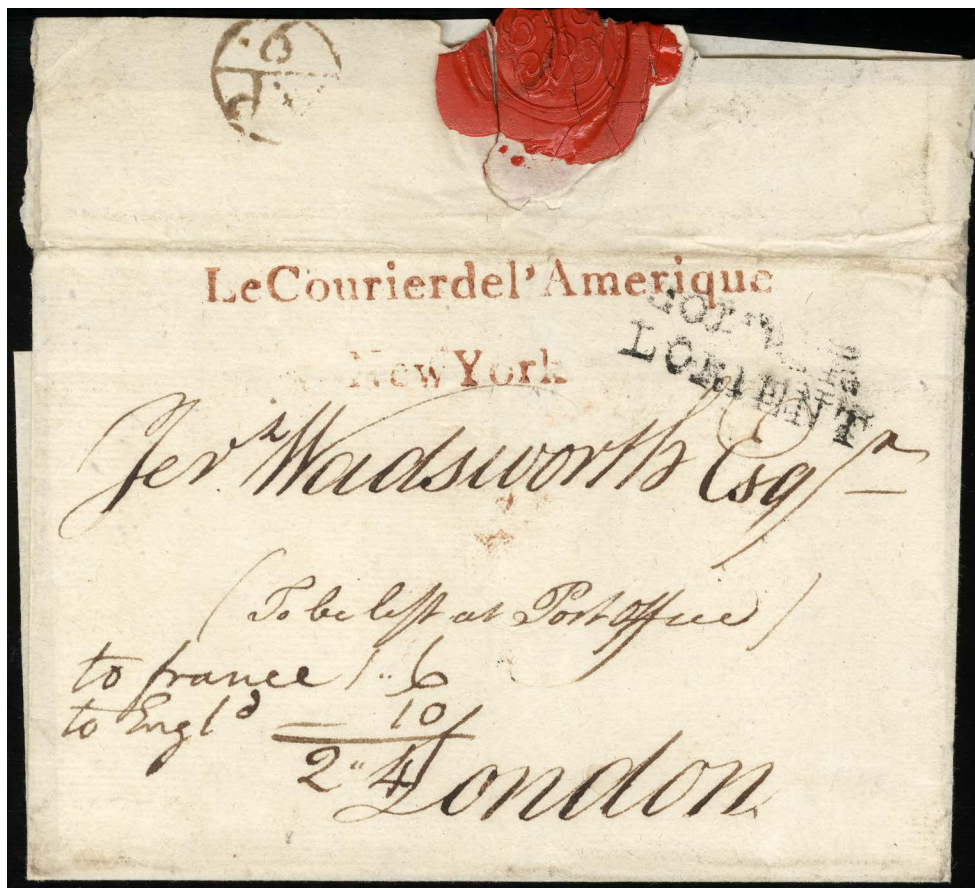 LeCourierdel'Amerique
New York
LORIENT
Jerh Wadsworth Esqr
(To be left at Post Office)
to france 1" 6
to Engld — 10
2" 4
London